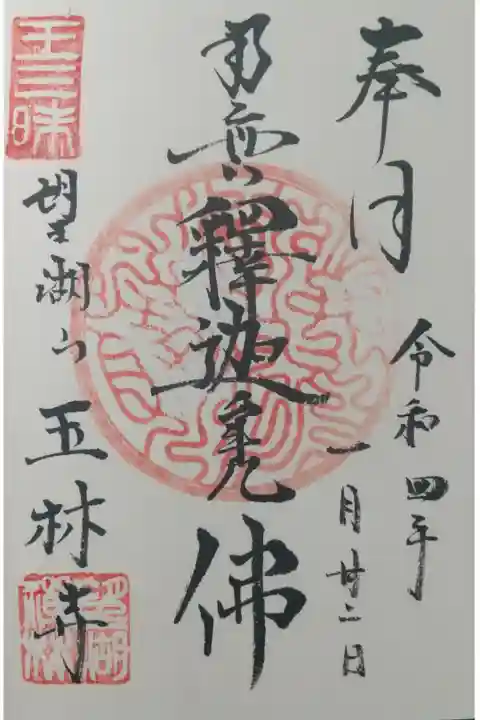 奉拝
令和四年
一月廿二日
南無釋迦牟尼佛
王三昧
望湖山
玉林寺